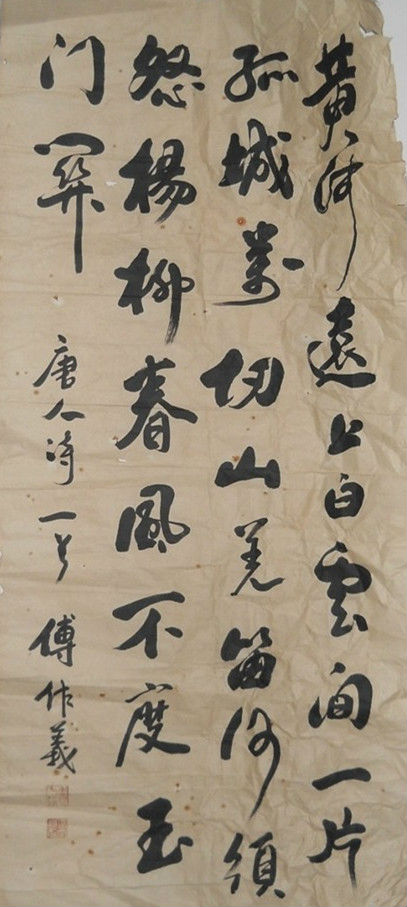 黄河遠上白雲间一片
孤城萬仞山羌笛何須
怨楊柳春風不度玉
门関
唐人诗一首 傅作義